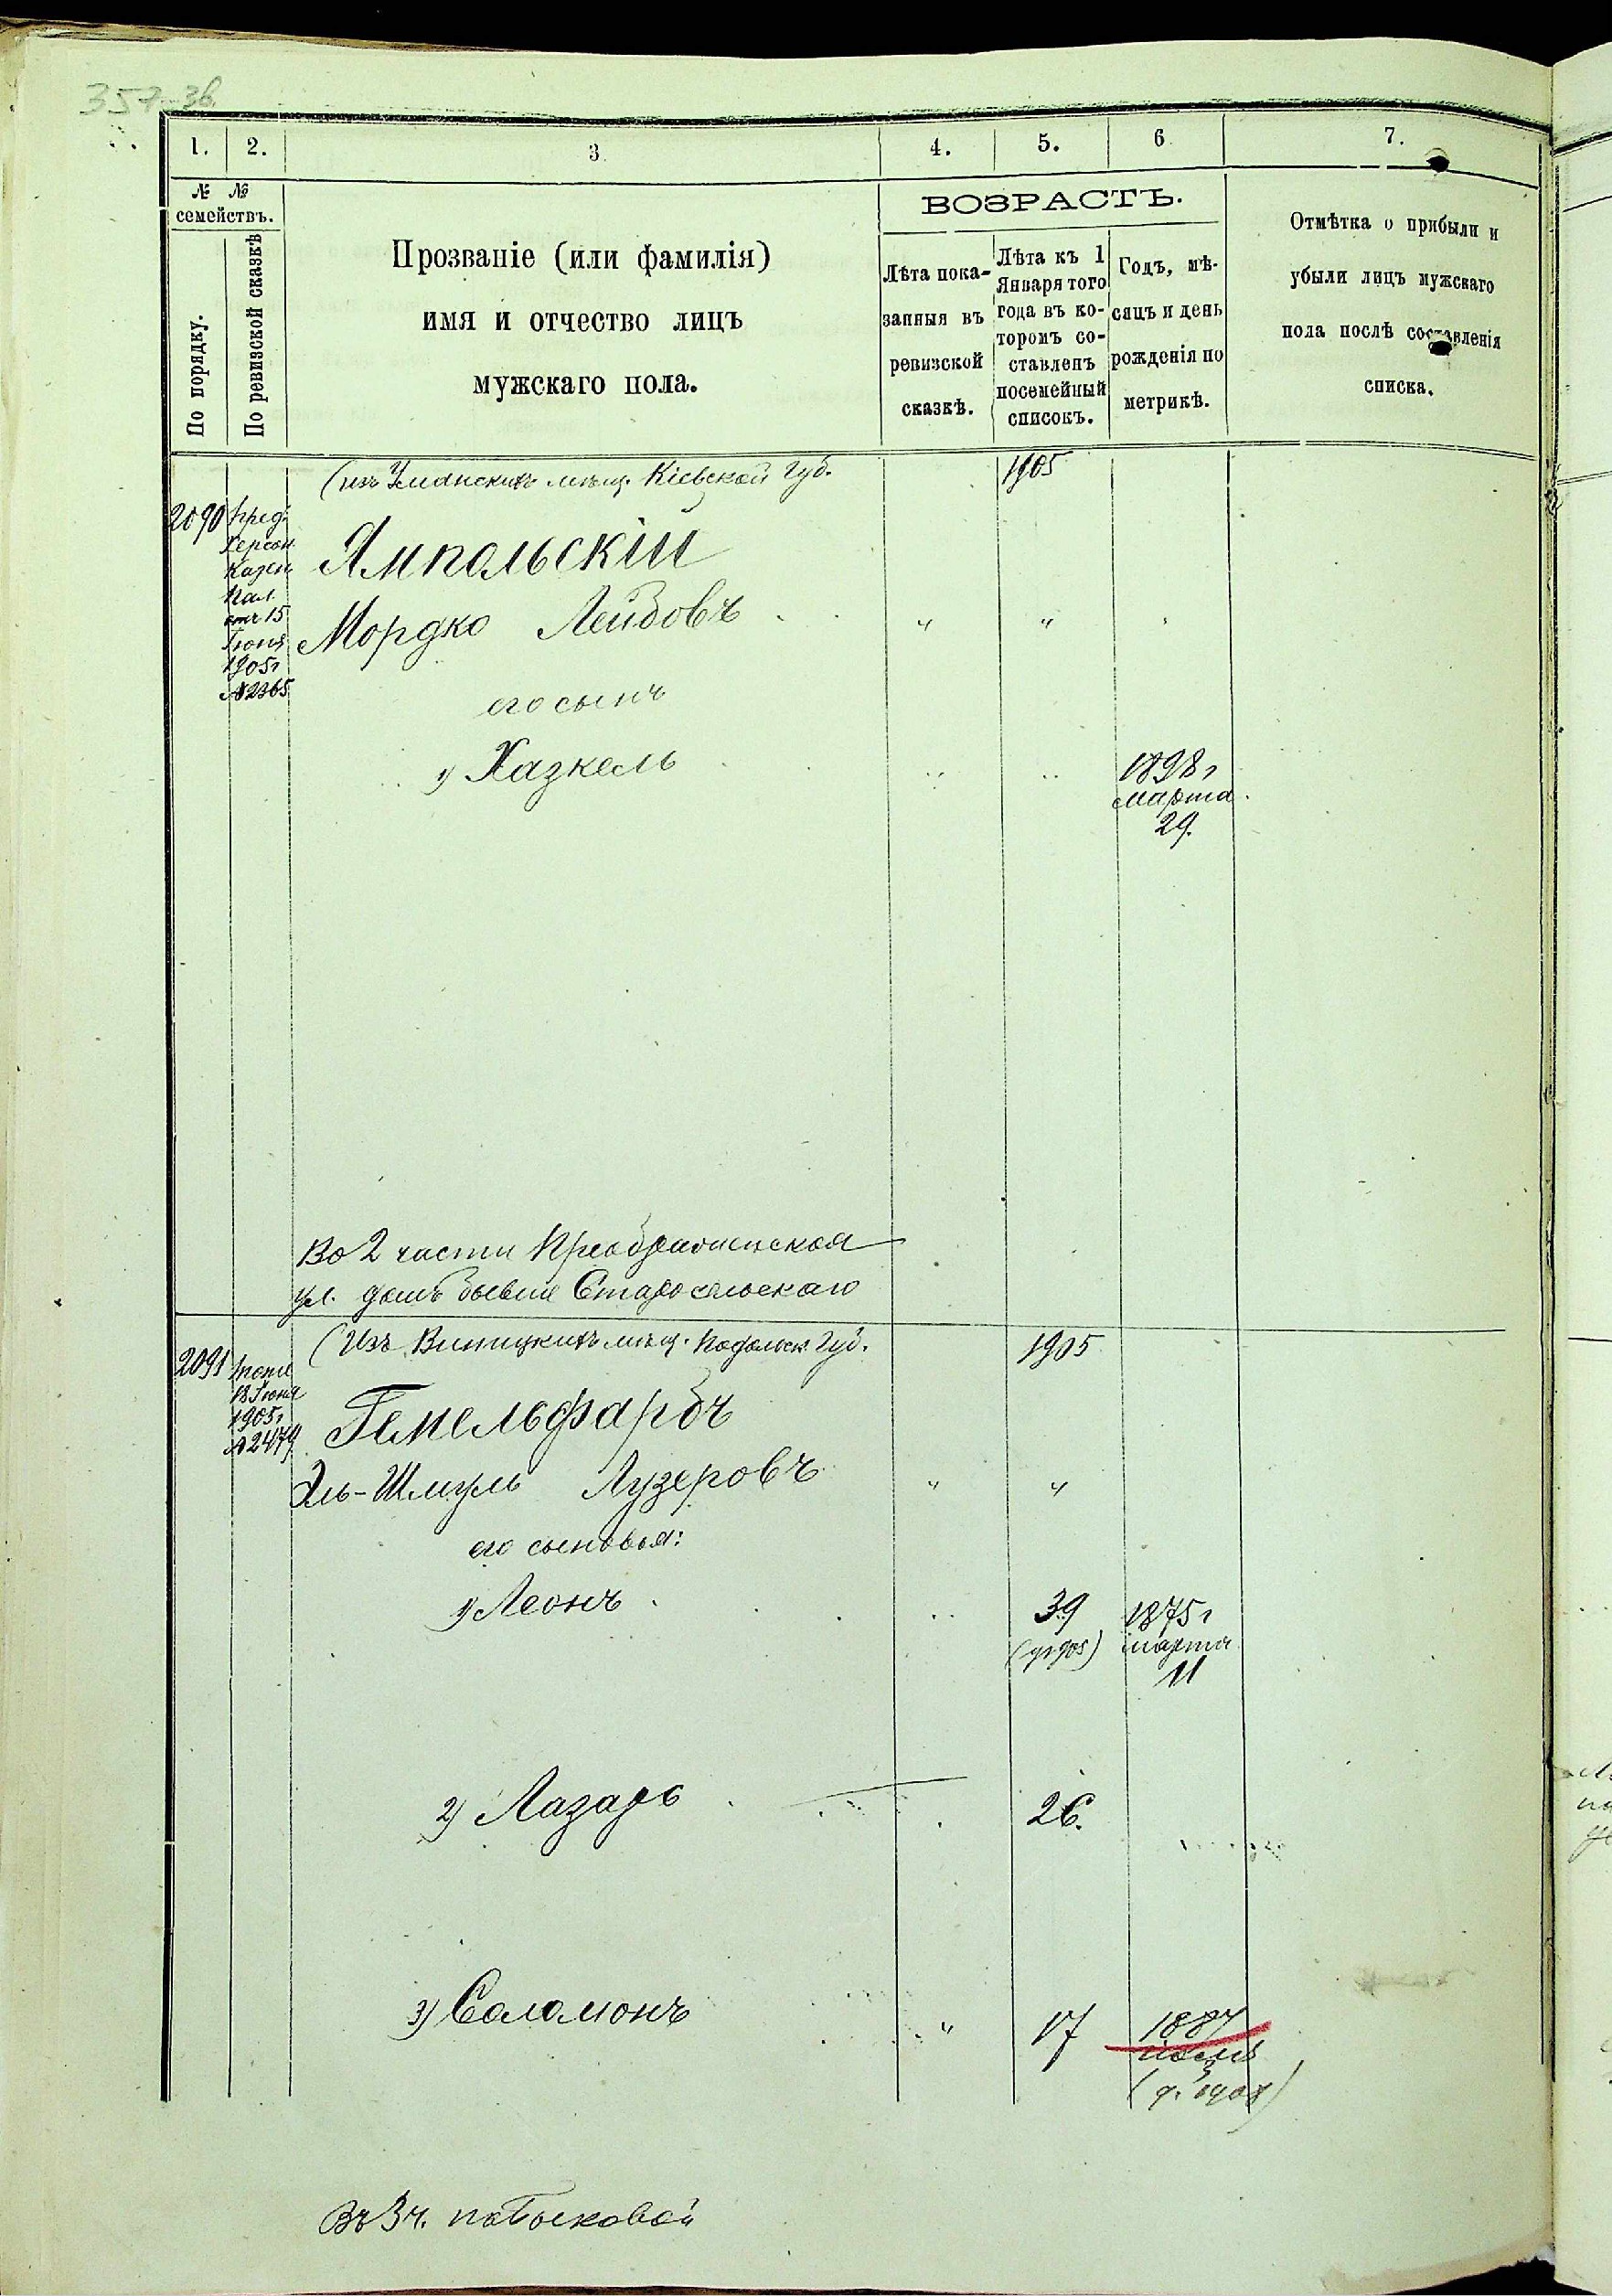 357 зв.
1.
2.
3
4.
5.
6
7.
№ №
семействъ.
По порядку.
По ревизской сказкѣ
Прозваніе (или фамилія)
имя и отчество лицъ
мужскаго пола.
ВОЗРАСТЪ.
Лѣта пока-
занныя въ
ревизской
сказкѣ.
Лѣта къ 1
Января того
года въ ко-
торомъ со-
ставленъ
посемейный
списокъ.
Годъ, мѣ-
сяцъ и день
рожденія по
метрикѣ.
Отмѣтка о прибыли и
убыли лицъ мужскаго
пола послѣ составленія
списка.
(изъ Уманскихъ мѣщ. Кіевской Губ.
1905
2090
Пред.
Херсон.
Казен
Пал.
отъ 15
Іюня
1905 г
№ 2365
Ямпольскій
Мордко Лейбовъ
его сынъ
1) Хазкель
1898 г
марта
29.
Во 2 части Преображенская
ул. домъ бывш Старосельскаго
(Изъ Виницкихъ мѣщ. Подольск. Губ.
1905
2091
тоже
18 Іюня
1905 г
№ 2479
Гемельфарбъ
Эль-Шмуль Лузеровъ
его сыновья:
1) Леонъ
39
1875 г
марта
11
2) Лазарь
26.
3) Соломонъ
17
1887
3
Въ 3 ч. по Госковой